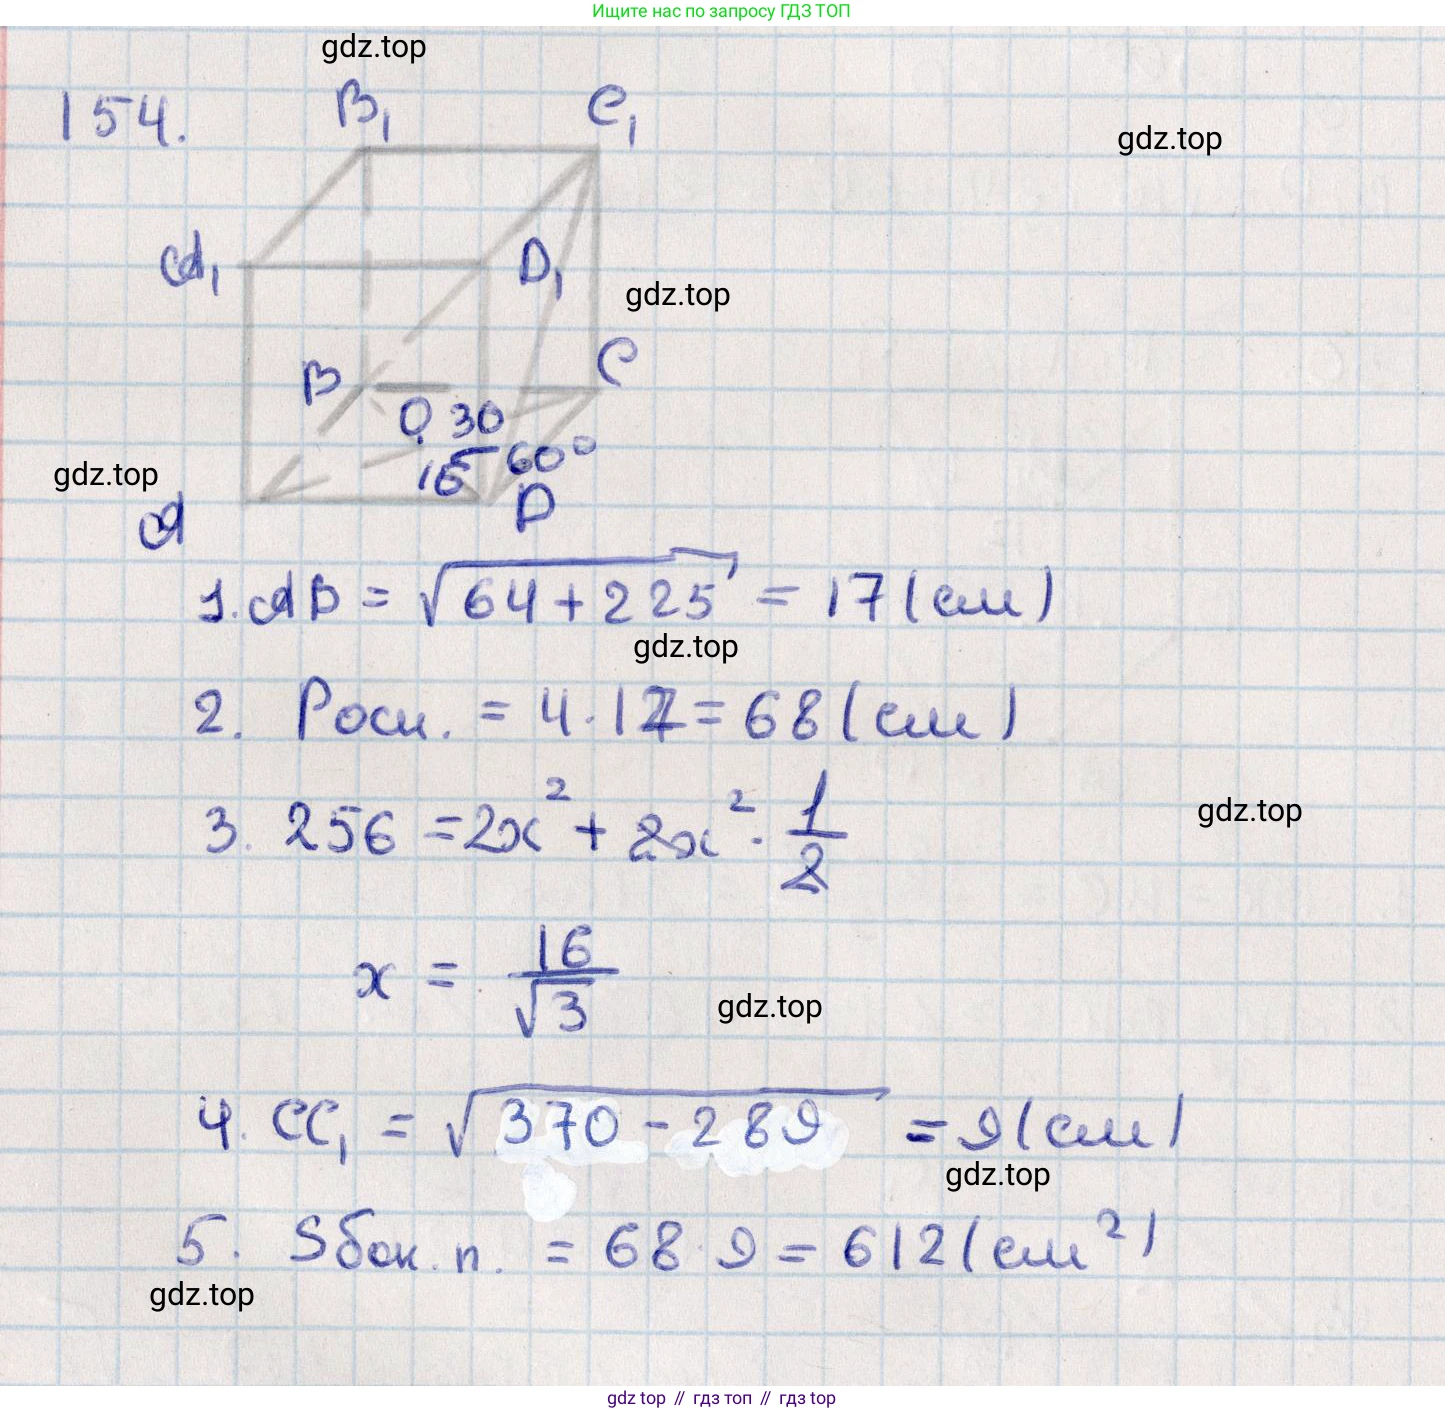 Ищите нас по запросу ГДЗ ТОП
gdz.top
154.
B₁
C₁
gdz.top
A₁
D₁
gdz.top
B
C
O 30
16 60°
gdz.top
A
D
1. AB = √64 + 225 = 17 (см)
gdz.top
2. Pосн. = 4 · 17 = 68 (см)
3. 256 = 2x² + 2x² · 1/2
gdz.top
x = 16/√3
gdz.top
4. CC₁ = √370 - 289 = 9 (см)
gdz.top
5. Sбок. п. = 68 · 9 = 612 (см²)
gdz.top
gdz top // гдз топ // гдз top